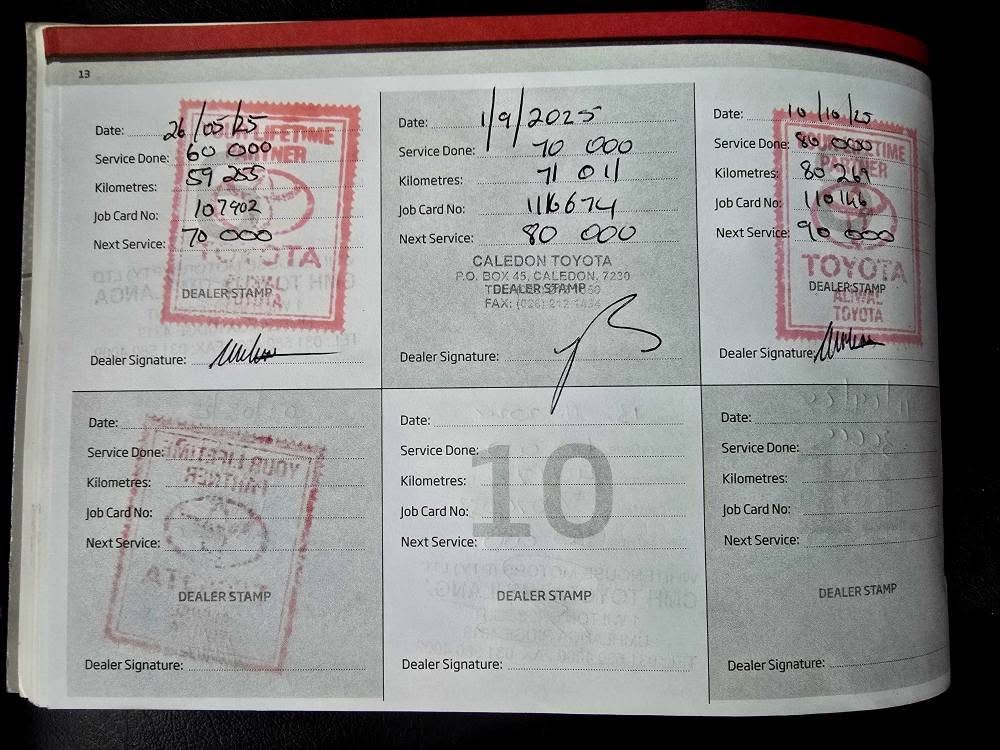 13
Date: 26/05/25
Service Done: 60 000
Kilometres: 59 255
Job Card No: 107902
Next Service: 70 000
YOUR LIFETIME
PARTNER
TOYOTA
ALIWAL
TOYOTA
DEALER STAMP
Dealer Signature:
Date: 1/9/2025
Service Done: 70 000
Kilometres: 71 011
Job Card No: 116674
Next Service: 80 000
CALEDON TOYOTA
P.O. BOX 45, CALEDON, 7230
DEALER STAMP
FAX: (028) 212 1434
Dealer Signature:
Date: 10/10/25
Service Done: 80 000
Kilometres: 80 269
Job Card No: 110146
Next Service: 90 000
YOUR LIFETIME
PARTNER
TOYOTA
DEALER STAMP
ALIWAL
TOYOTA
Dealer Signature:
Date:
Service Done:
Kilometres:
Job Card No:
Next Service:
DEALER STAMP
Dealer Signature:
10
Date:
Service Done:
Kilometres:
Job Card No:
Next Service:
DEALER STAMP
Dealer Signature:
Date:
Service Done:
Kilometres:
Job Card No:
Next Service:
DEALER STAMP
Dealer Signature: